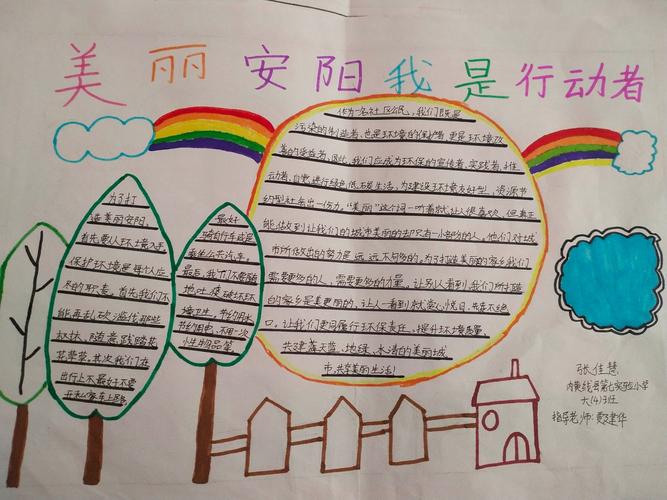 美丽安阳我是行动者
为了打
造美丽安阳,
首先要从环境入手
保护环境是每个应
尽的职责,首先我们不
能再乱砍滥伐那些
树林,随意践踏花
花草草,其次我们在
出行上不最好不要
开私家车上路,
最好
骑自行车或是
乘坐公共汽车,
最后,我们不要随
地吐痰破坏环
境卫生,节约用水
节约用电,不用一次
性用品筷
作为一名社区公民,我们既是
污染的制造者,也是环境的保护者更是环境改
善的受益者,因此,我们应成为环保的宣传者、实践者、推
动者,自觉进行绿色、低碳生活,为建设环境友好型、资源节
约型社会出一份力,"美丽"这个词一听着就让人很喜欢,但真正
能做到让我们的城市美丽的却只有一小部分人,他们对城
市所做出的努力是远远不够多的,为了打造美丽的家乡我们
需要更多的人,需要更多的力量,让别人看到我们所打造
的家乡是美更丽的,让人一看到就赏心悦目,共享不绝
口。让我们更同履行环保责任,提升环境质量
共建蓝天蓝、地绿、水清的美丽城
市,共享美的生活!
张佳慧
内黄县第七实验小学
六(4)班
指导老师:建华